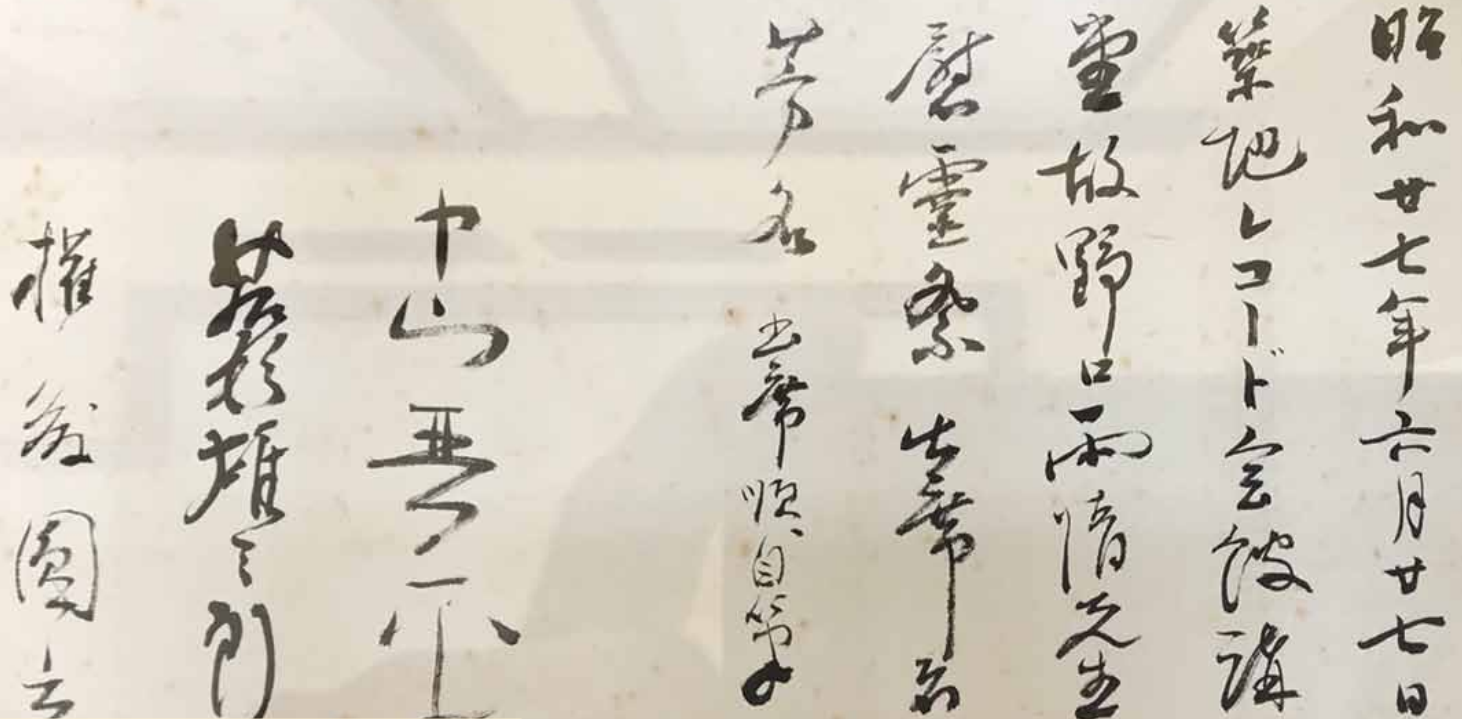 昭和廿七年六月廿七日
築地レコード会館講
堂故野口雨情先生
慰靈祭 出席者
芳名 出席順自筆
中山晋平
若杉雄三郎
權藤圓立